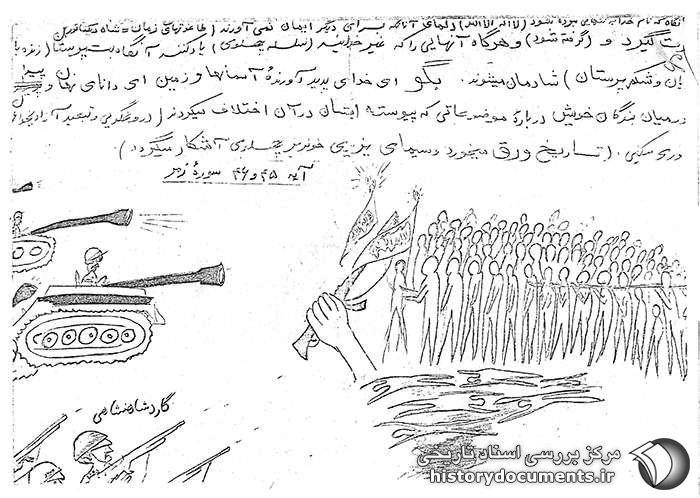 آنگاه که نام خدا به تنهایی برده شود (لا اله الا الله) دلهای آنانکه برای دیگر ایمان نمی آورند (طاغوتهای زمان = شاه
گیرد و (گرفته شود) و هرگاه آنهایی را که غیر خداست (سلسله پهلوی) یاد کنند آنگاه بت پرستان (زنده باد
و شکم پرستان) شادمان میشوند. بگو ای خدای پدید آورنده آسمانها و زمین ای دانای نهان و
درمیان بندگان خویش درباره موضوعاتی که پیوسته ایشان در آن اختلاف میکردند (دروغگویی و تبعید آزادیخواهان
داوری میکنی. (تاریخ ورق میخورد و سیمای یزیدی خونریز پهلوی آشکار میگردد)
آیه ۴۵ و ۴۶ سورهٔ زمر
گارد شاهنشاهی
مرکز بررسی اسناد تاریخی
historydocuments.ir